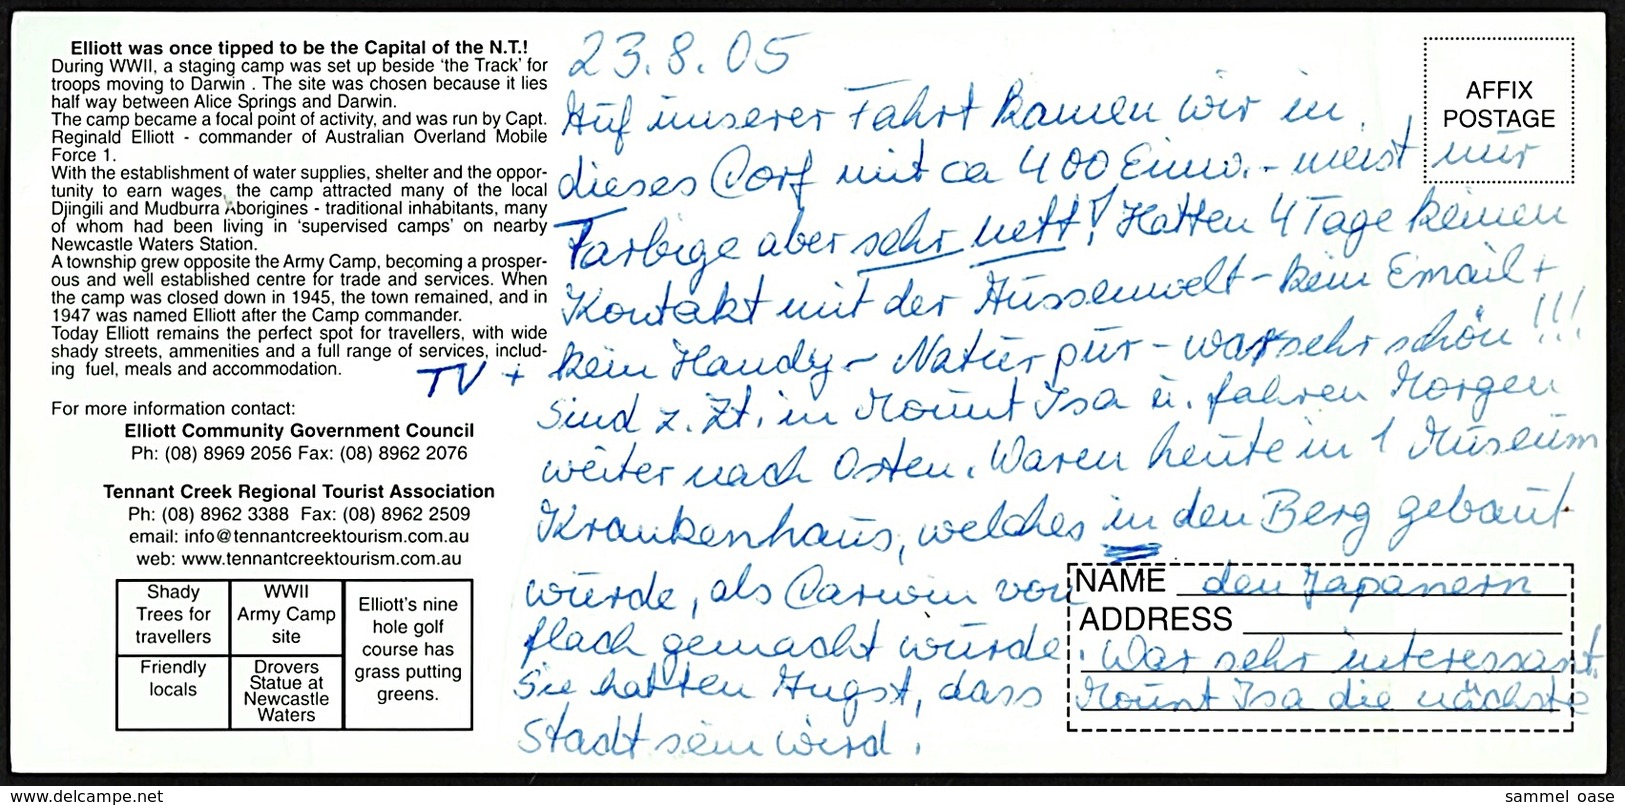 Elliott was once tipped to be the Capital of the N.T.!
During WWII, a staging camp was set up beside 'the Track' for
troops moving to Darwin . The site was chosen because it lies
half way between Alice Springs and Darwin.
The camp became a focal point of activity, and was run by Capt.
Reginald Elliott - commander of Australian Overland Mobile
Force 1.
With the establishment of water supplies, shelter and the oppor-
tunity to earn wages, the camp attracted many of the local
Djingili and Mudburra Aborigines - traditional inhabitants, many
of whom had been living in 'supervised camps' on nearby
Newcastle Waters Station.
A township grew opposite the Army Camp, becoming a prosper-
ous and well established centre for trade and services. When
the camp was closed down in 1945, the town remained, and in
1947 was named Elliott after the Camp commander.
Today Elliott remains the perfect spot for travellers, with wide
shady streets, ammenities and a full range of services, includ-
ing fuel, meals and accommodation.
For more information contact:
Elliott Community Government Council
Ph: (08) 8969 2056 Fax: (08) 8962 2076
Tennant Creek Regional Tourist Association
Ph: (08) 8962 3388 Fax: (08) 8962 2509
email: info@tennantcreektourism.com.au
web: www.tennantcreektourism.com.au
Shady
Trees for
travellers
WWII
Army Camp
site
Elliott's nine
hole golf
course has
grass putting
greens.
Friendly
locals
Drovers
Statue at
Newcastle
Waters
23.8.05
Auf unserer Fahrt kamen wir in
dieses Dorf mit ca 400 Einw. - meist nur
Farbige aber sehr nett! Hatten 4 Tage keinen
Kontakt mit der Aussenwelt - kein Email +
TV + kein Handy - Natur pur - war sehr schön!!!
Sind z. Zt. in Mount Isa u. fahren Morgen
weiter nach Osten. Waren heute in 1 Museum
Krankenhaus, welches in den Berg gebaut
wurde, als Darwin von den Japanern
flach gemacht wurde. War sehr interessant.
Sie hatten Angst, dass Mount Isa die nächste
Stadt sein wird.
AFFIX
POSTAGE
NAME
ADDRESS
www.delcampe.net
sammel_oase